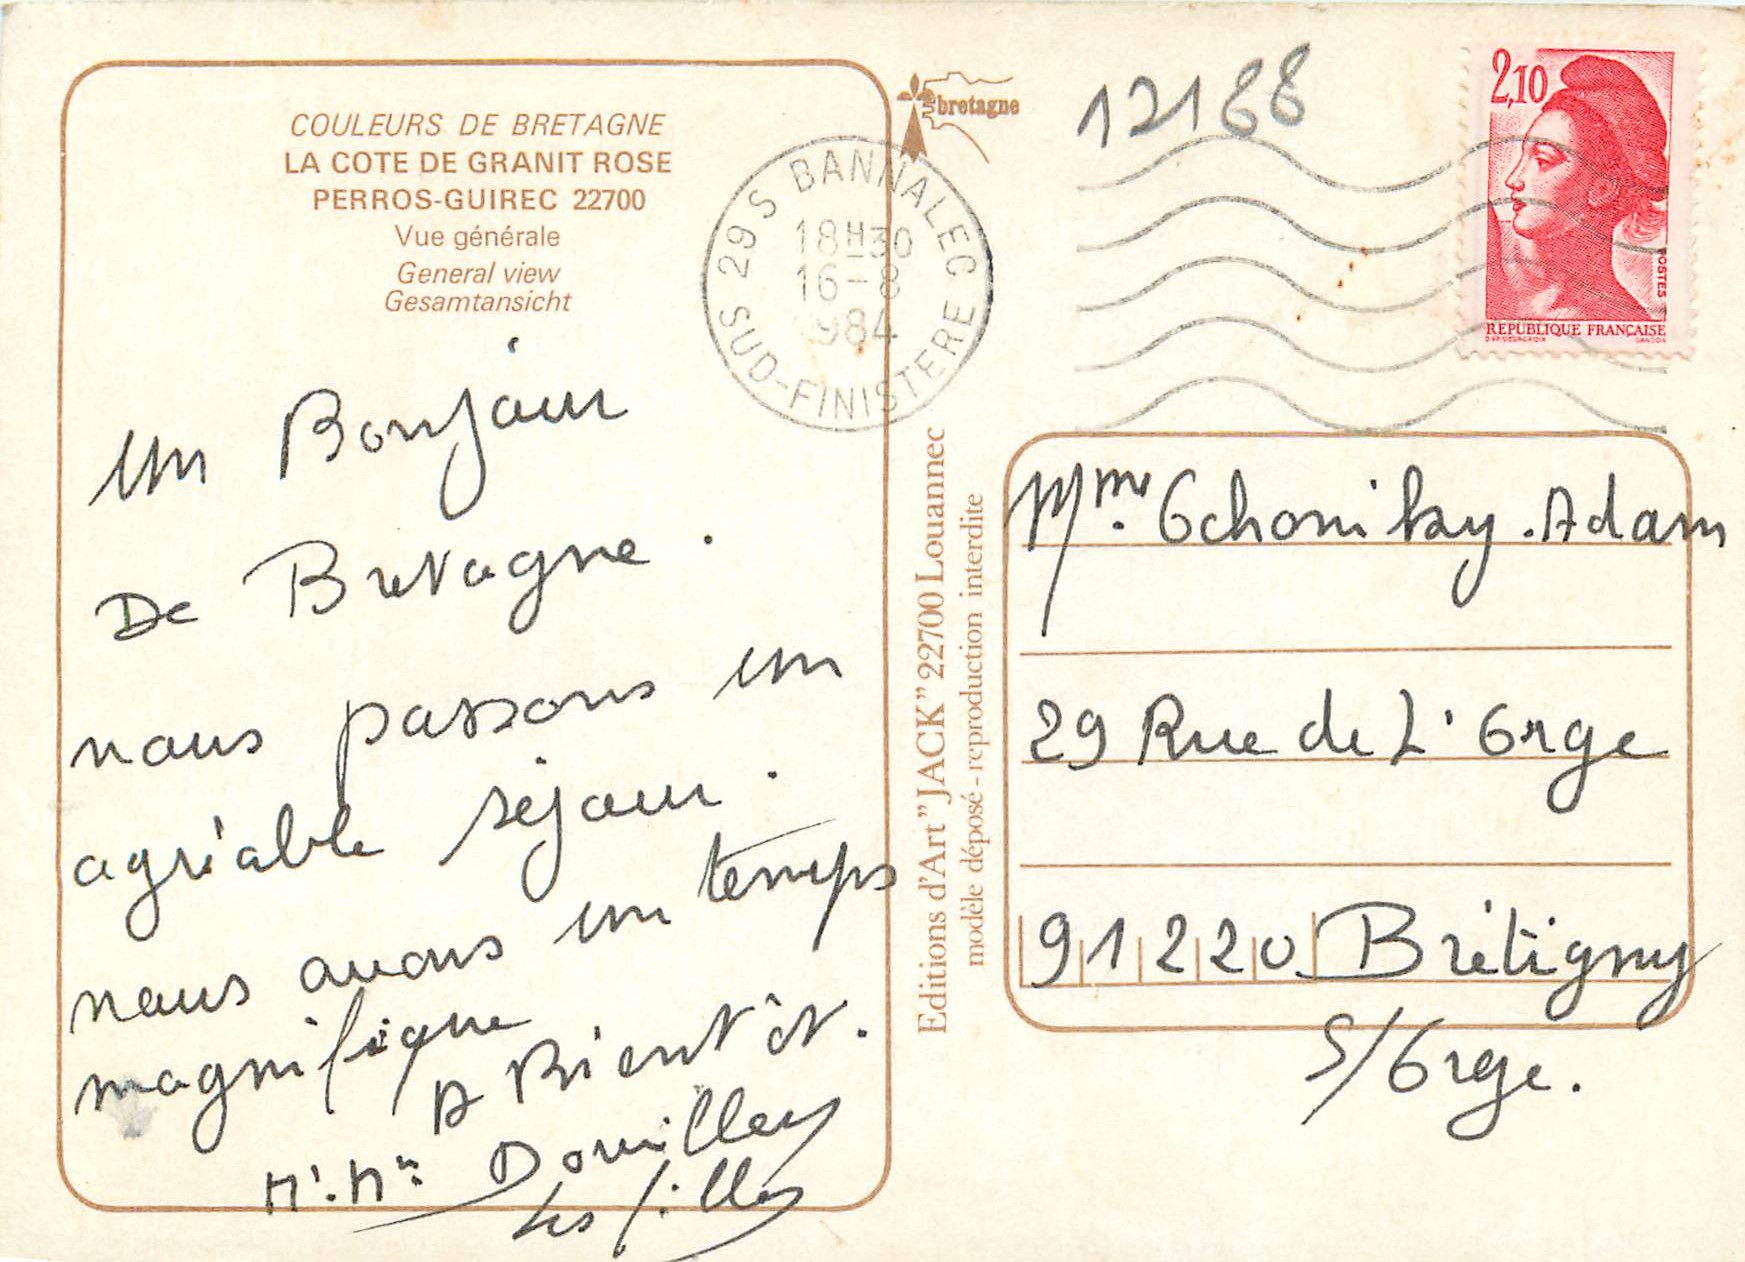 COULEURS DE BRETAGNE
LA COTE DE GRANIT ROSE
PERROS-GUIREC 22700
Vue générale
General view
Gesamtansicht
un Bonjour
De Bretagne.
nous passons un
agréable séjour.
nous avons un temps
magnifique
A Bientôt.
Mr. Me Douilley
Les filles
bretagne
29 S BANNALEC
18H30
16-8
1984
SUD-FINISTERE
Editions d'Art "JACK" 22700 Louannec
modèle déposé - reproduction interdite
12188
2,10
POSTES
REPUBLIQUE FRANÇAISE
GANDON
Mme Adam
29 Rue de L'Orge
91220 Brétigny
S/Orge.